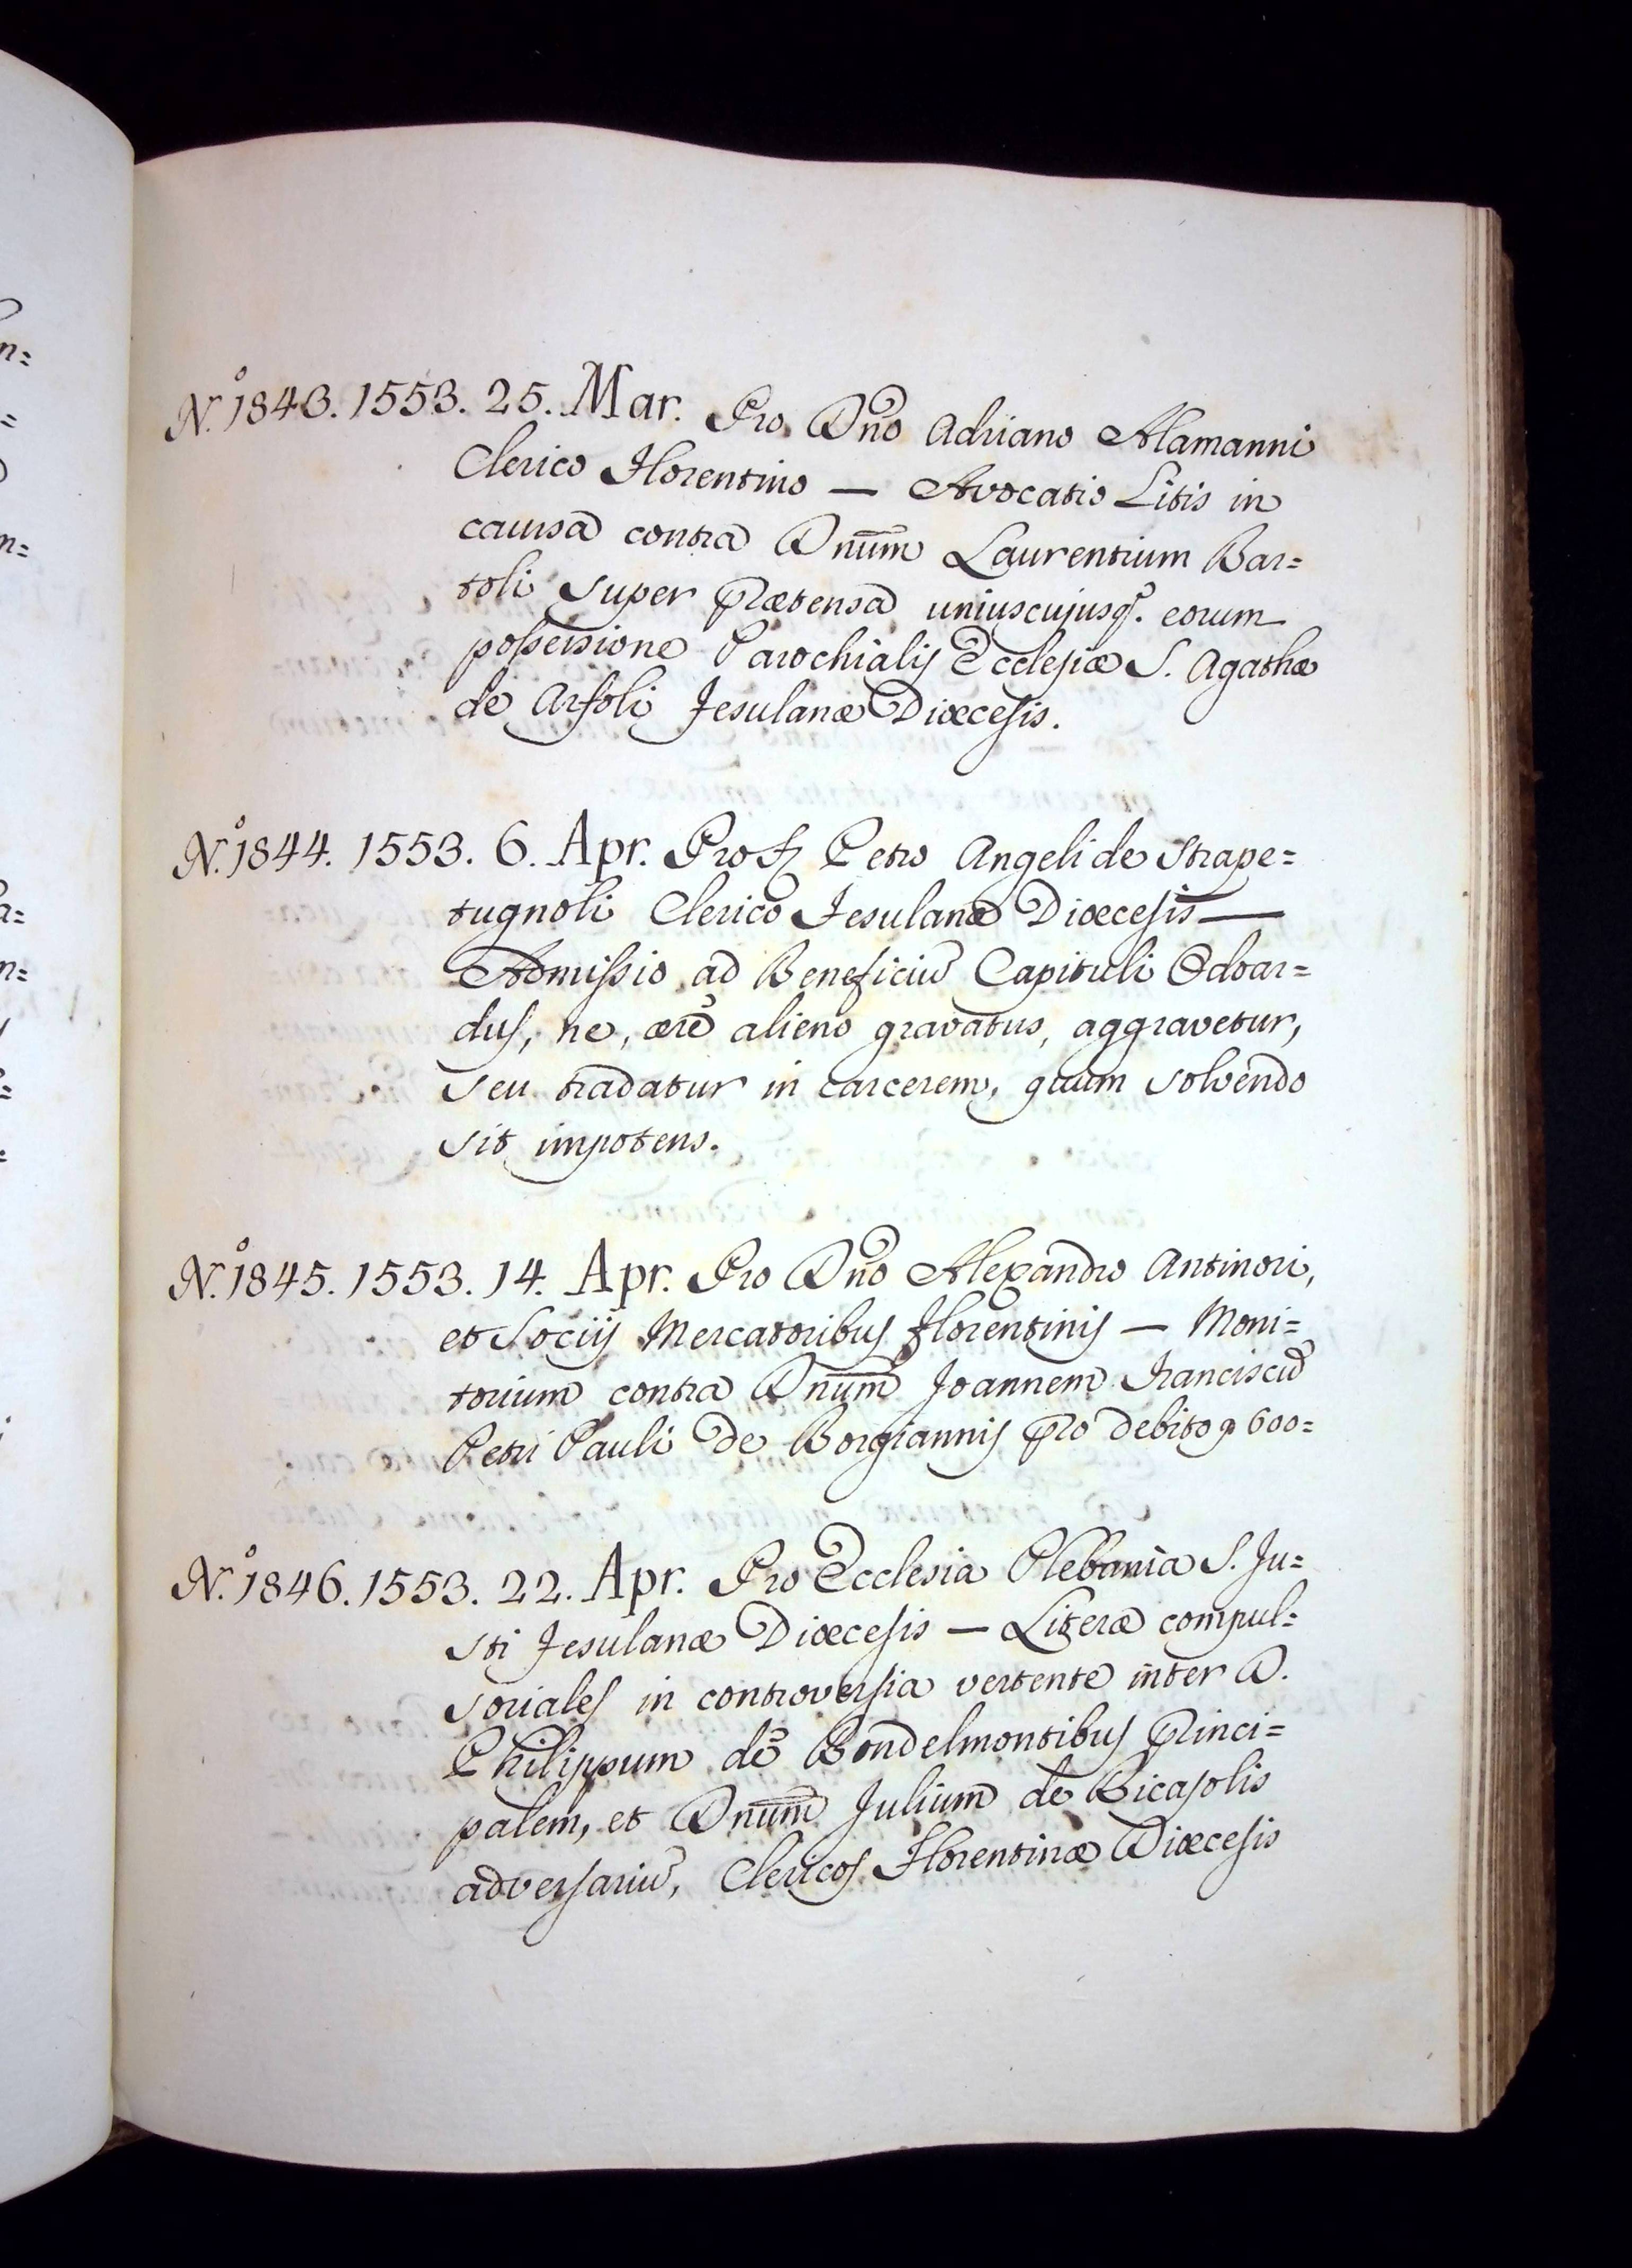 N.º 1843. 1553. 25. Mar. Pro Dño Adriano Alamanni
Clerico Florentino — Avocatio Litis in
causa contra Dnũm Laurentium Bar=
toli super prætensa uniuscujusq̃. eorum
possessione Parochialis Ecclesiæ S. Agathæ
de Arfoli Fesulanæ Diœcesis.
N.º 1844. 1553. 6. Apr. Pro Petro Angeli de Strape=
tugnoli Clerico Fesulanæ Diœcesis —
Admissio ad Beneficiũ Capituli Odoar=
dus, ne, ære alieno gravatus, aggravetur,
seu tradatur in carcerem, quum solvendo
sit impotens.
N.º 1845. 1553. 14. Apr. Pro Dño Alexandro Antinori,
et Sociis Mercatoribus Florentinis — Moni=
torium contra Dnũm Joannem Franciscũ
Petri Pauli de Borgiannis pro debito 600=
N.º 1846. 1553. 22. Apr. Pro Ecclesia Plebania S. Ju=
sti Fesulanæ Diœcesis — Literæ compul=
soriales in controversia vertente inter D.
Philippum de Bondelmontibus princi=
palem, et Dnũm Julium de Ricasolis
adversariũ, Clericos Florentinæ Diœcesis
n:
=
n:
a:
n: